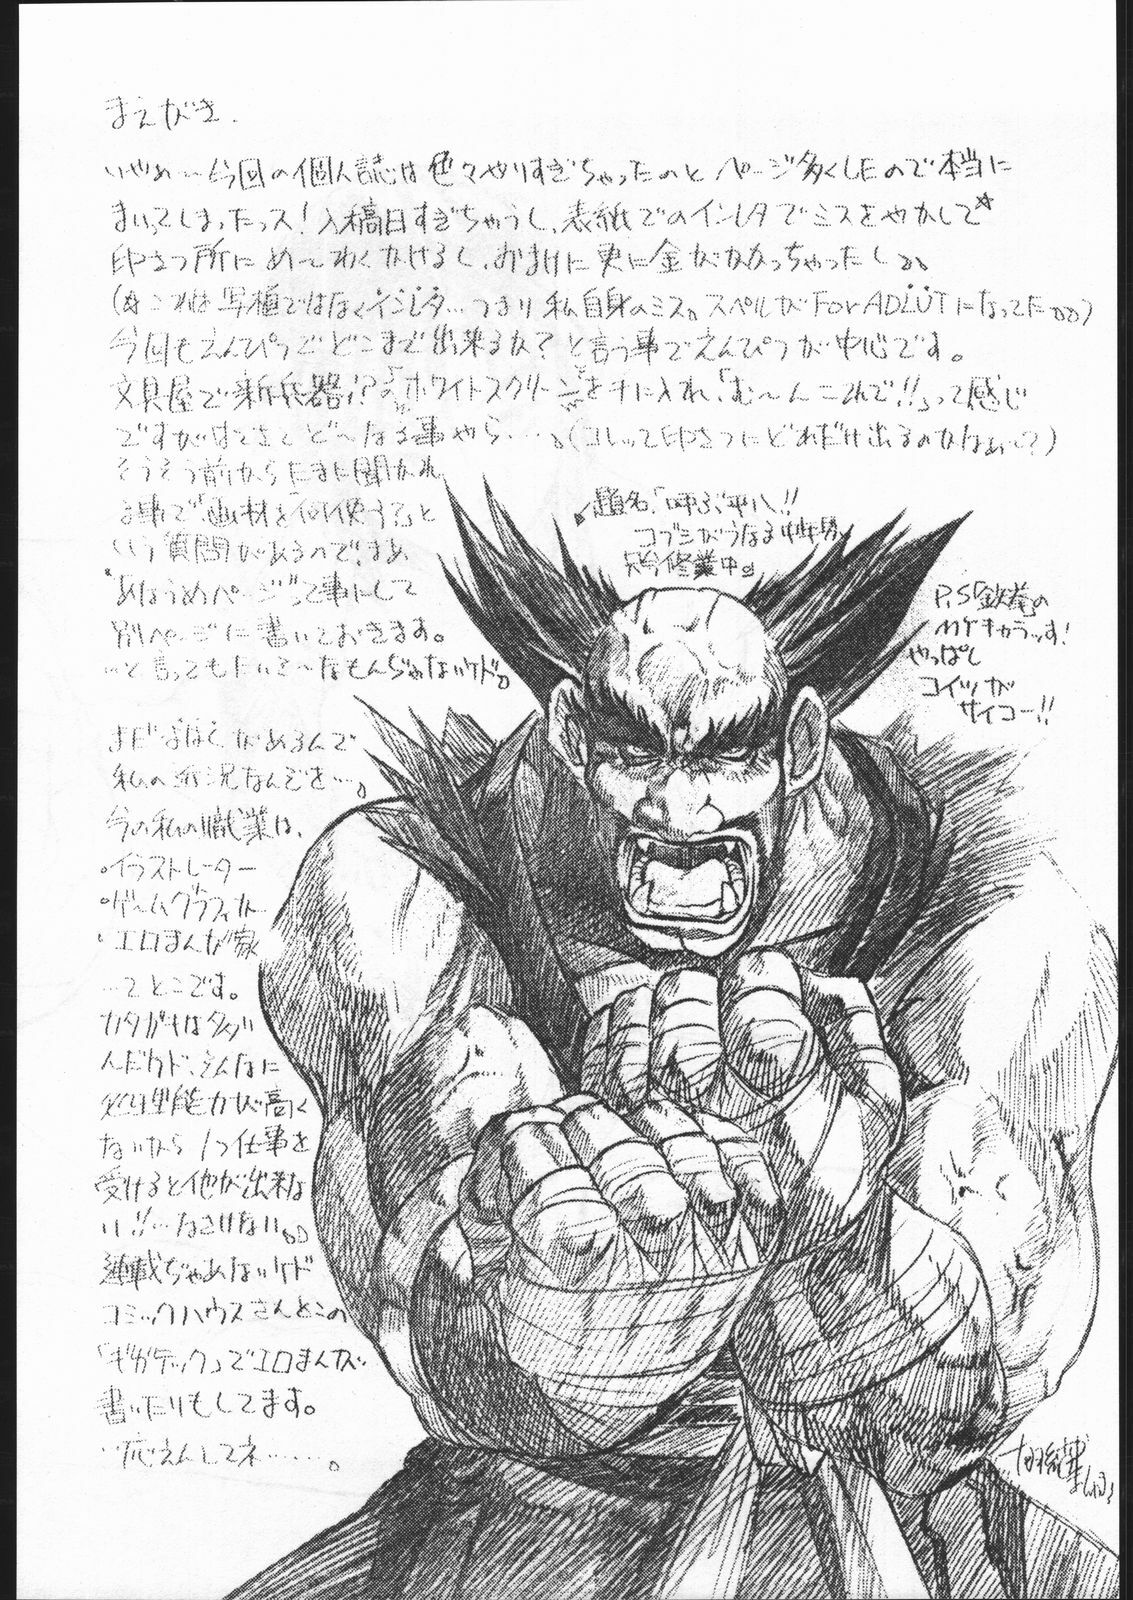 まえがき.
いやぁ…今回の個人誌は色々やりすぎちゃったのと ページ多くしたので本当に
まいってしまったっス! 入稿日すぎちゃうし、表紙でのインレタでミスをやかして☆
印さつ所にめ〜わくかけるし、おまけに更に金がかかっちゃったし。。
(☆これは写植ではなくインレタ…つまり私自身のミス。スペルが For ADLUTになってた。。)
今回もえんぴつでどこまで出来るか?と言う事でえんぴつが中心です。
文具屋で新兵器!?の「ホワイトスクリーン」を手に入れ、「む〜んこれで!!」って感じ
ですがはてさてど〜なる事やら….。(コレって印さつにどれだけ出るのかなぁ〜?)
そうそう前からたまに聞かれ
る事で「画材を何使う?」と
いう質問があるので、まぁ、
"あなうめページ"って事にして
別ページに書いておきます。
…と言ってもたいて〜なもんぢゃないケド。
まだよはくがあるんで
私の近況なんでを…。
今の私の職業は、
・イラストレーター
・ゲームグラフィカー
・エロまんが家
…てとこです。
カタガキは多い
んだケド、そんなに
処理能力が高く
ないから1つ仕事を
受けると他が出来な
い!!…なさけない。。
連載ぢゃあないケド
コミックハウスさんとこの
「ギガテック」でエロまんが
書いたりもしてます。
…応えんしてネ……。
題名、「呼ぶ平八!!
コブシがうなる
只今修業中」
P.S「鉄拳」の
MYキャラっす!
やっぱし
コイツが
サイコー!!